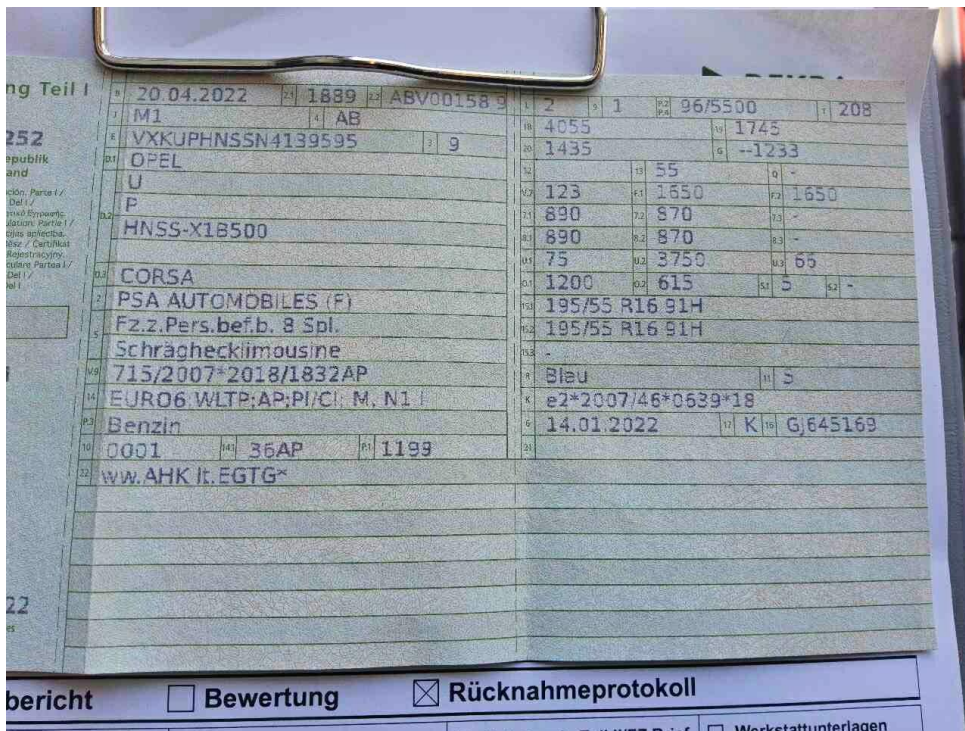 ng Teil I
252
epublik
and
B 20.04.2022 2.1 1889 2.2 ABV00158 9
J M1 4 AB
E VXKUPHNSSN4139595 3 9
D.1 OPEL
U
P
D.2 HNSS-X1B500
D.3 CORSA
2 PSA AUTOMOBILES (F)
5 Fz.z.Pers.bef.b. 8 Spl.
Schräghecklimousine
V.9 715/2007*2018/1832AP
14 EURO6;WLTP;AP;PI/CI; M, N1 I
P.3 Benzin
10 0001 14.1 36AP P.1 1199
22 ww.AHK lt.EGTG*
L 2 9 1 P.2 P.4 96/5500 T 208
18 4055 19 1745
20 1435 G --1233
12 13 55 Q -
V.7 123 F.1 1650 F.2 1650
7.1 890 7.2 870 7.3 -
8.1 890 8.2 870 8.3 -
U.1 75 U.2 3750 U.3 65
O.1 1200 O.2 615 S.1 5 S.2 -
15.1 195/55 R16 91H
15.2 195/55 R16 91H
15.3 -
R Blau 11 5
K e2*2007/46*0639*18
6 14.01.2022 17 K 16 GJ645169
21
22
bericht
Bewertung
Rücknahmeprotokoll
Werkstattunterlagen